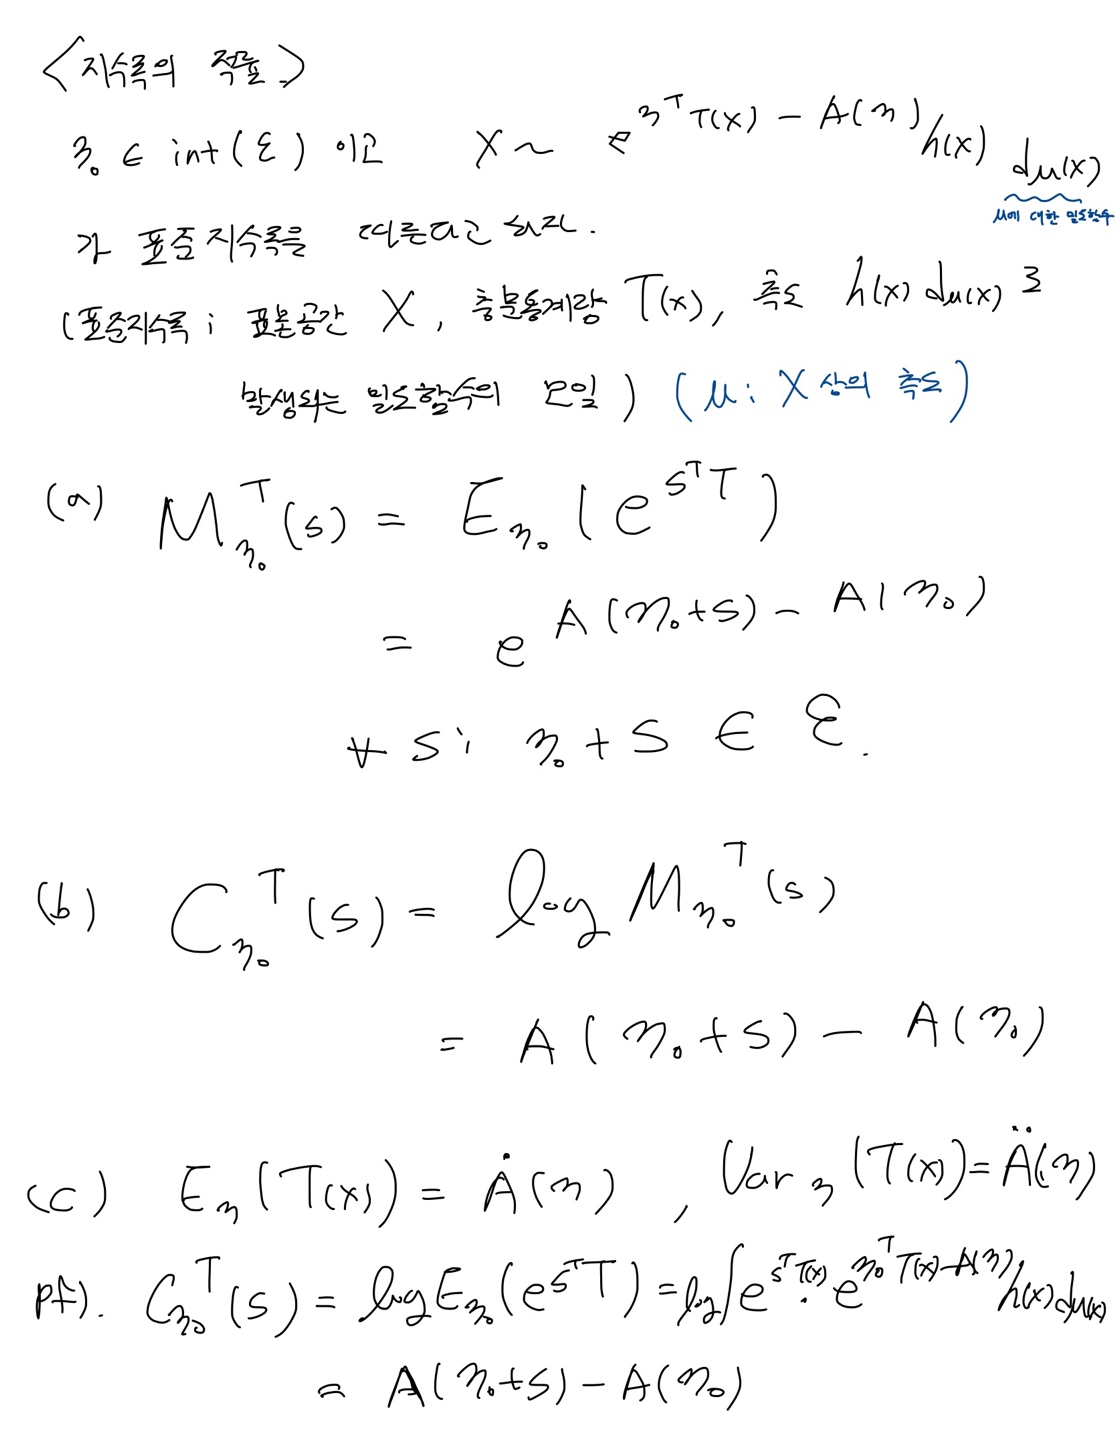 <지수족의 적률>
η₀ ∈ int(ℰ) 이고 X ~ e^{η^T T(x) - A(η)} h(x) dμ(x)
μ에 대한 밀도함수
가 표준지수족을 따른다고 하자.
(표준지수족 ; 표본공간 X, 충분통계량 T(x), 측도 h(x) dμ(x)로
발생되는 밀도함수의 모임) (μ: X 상의 측도)
(a) M_{η₀}^T(s) = E_{η₀}(e^{s^T T})
= e^{A(η₀+s) - A(η₀)}
∀ s; η₀ + s ∈ ℰ.
(b) C_{η₀}^T(s) = log M_{η₀}^T(s)
= A(η₀+s) - A(η₀)
(c) E_η(T(x)) = Ȧ(η), Var_η(T(x)) = Ä(η)
pf). C_{η₀}^T(s) = log E_{η₀}(e^{s^T T}) = log ∫ e^{s^T T(x)} · e^{η₀^T T(x) - A(η)} h(x) dμ(x)
= A(η₀+s) - A(η₀)